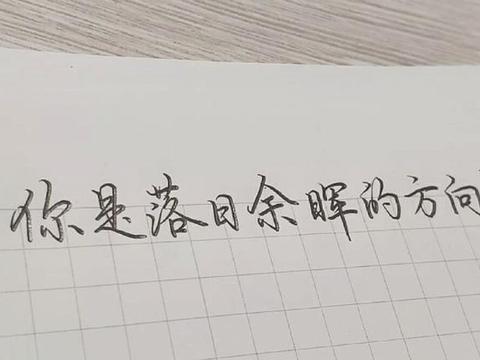 你是落日余晖的方向